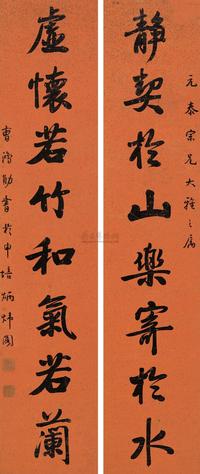 元泰宗兄大雅之属
靜契於山樂寄於水
虛懷若竹和氣若蘭
曹鴻勛書於申培炳